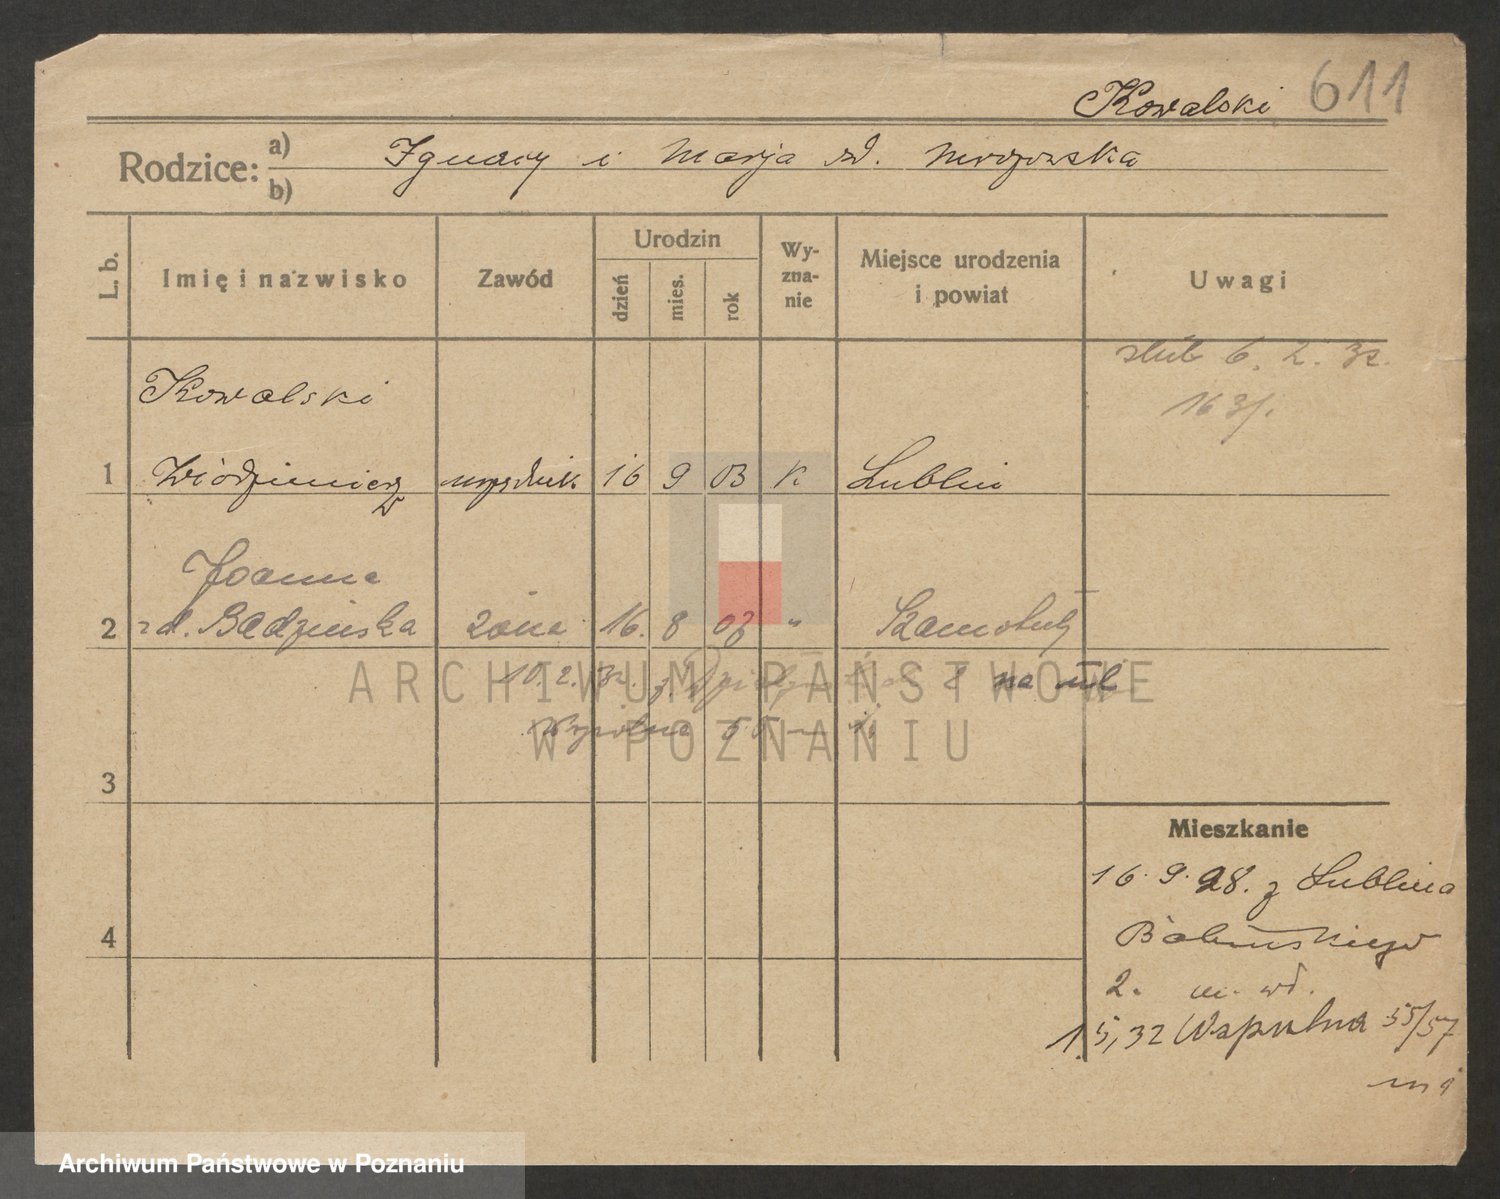 Kowalski 611
Rodzice: a) Ignacy i Marja zd. Mrozowska
b)
L. b.
Imię i nazwisko
Zawód
Urodzin
dzień
mies.
rok
Wy-
zna-
nie
Miejsce urodzenia
i powiat
Uwagi
ślub 6. 2. 32.
Kowalski
1 Włodzimierz urzędnik 16 9 03 K Lublin
Joanna
2 zd. Badzińska żona 16. 8 07 " Szamotuły
10. 2. 32. z
na ul.
Wspólna
3
4
Mieszkanie
16. 9. 28. z Lublina
Babińskiego
2. m. wł.
1. 5, 32 Wspulna 55/57
m 9
ARCHIWUM PAŃSTWOWE
W POZNANIU
Archiwum Państwowe w Poznaniu